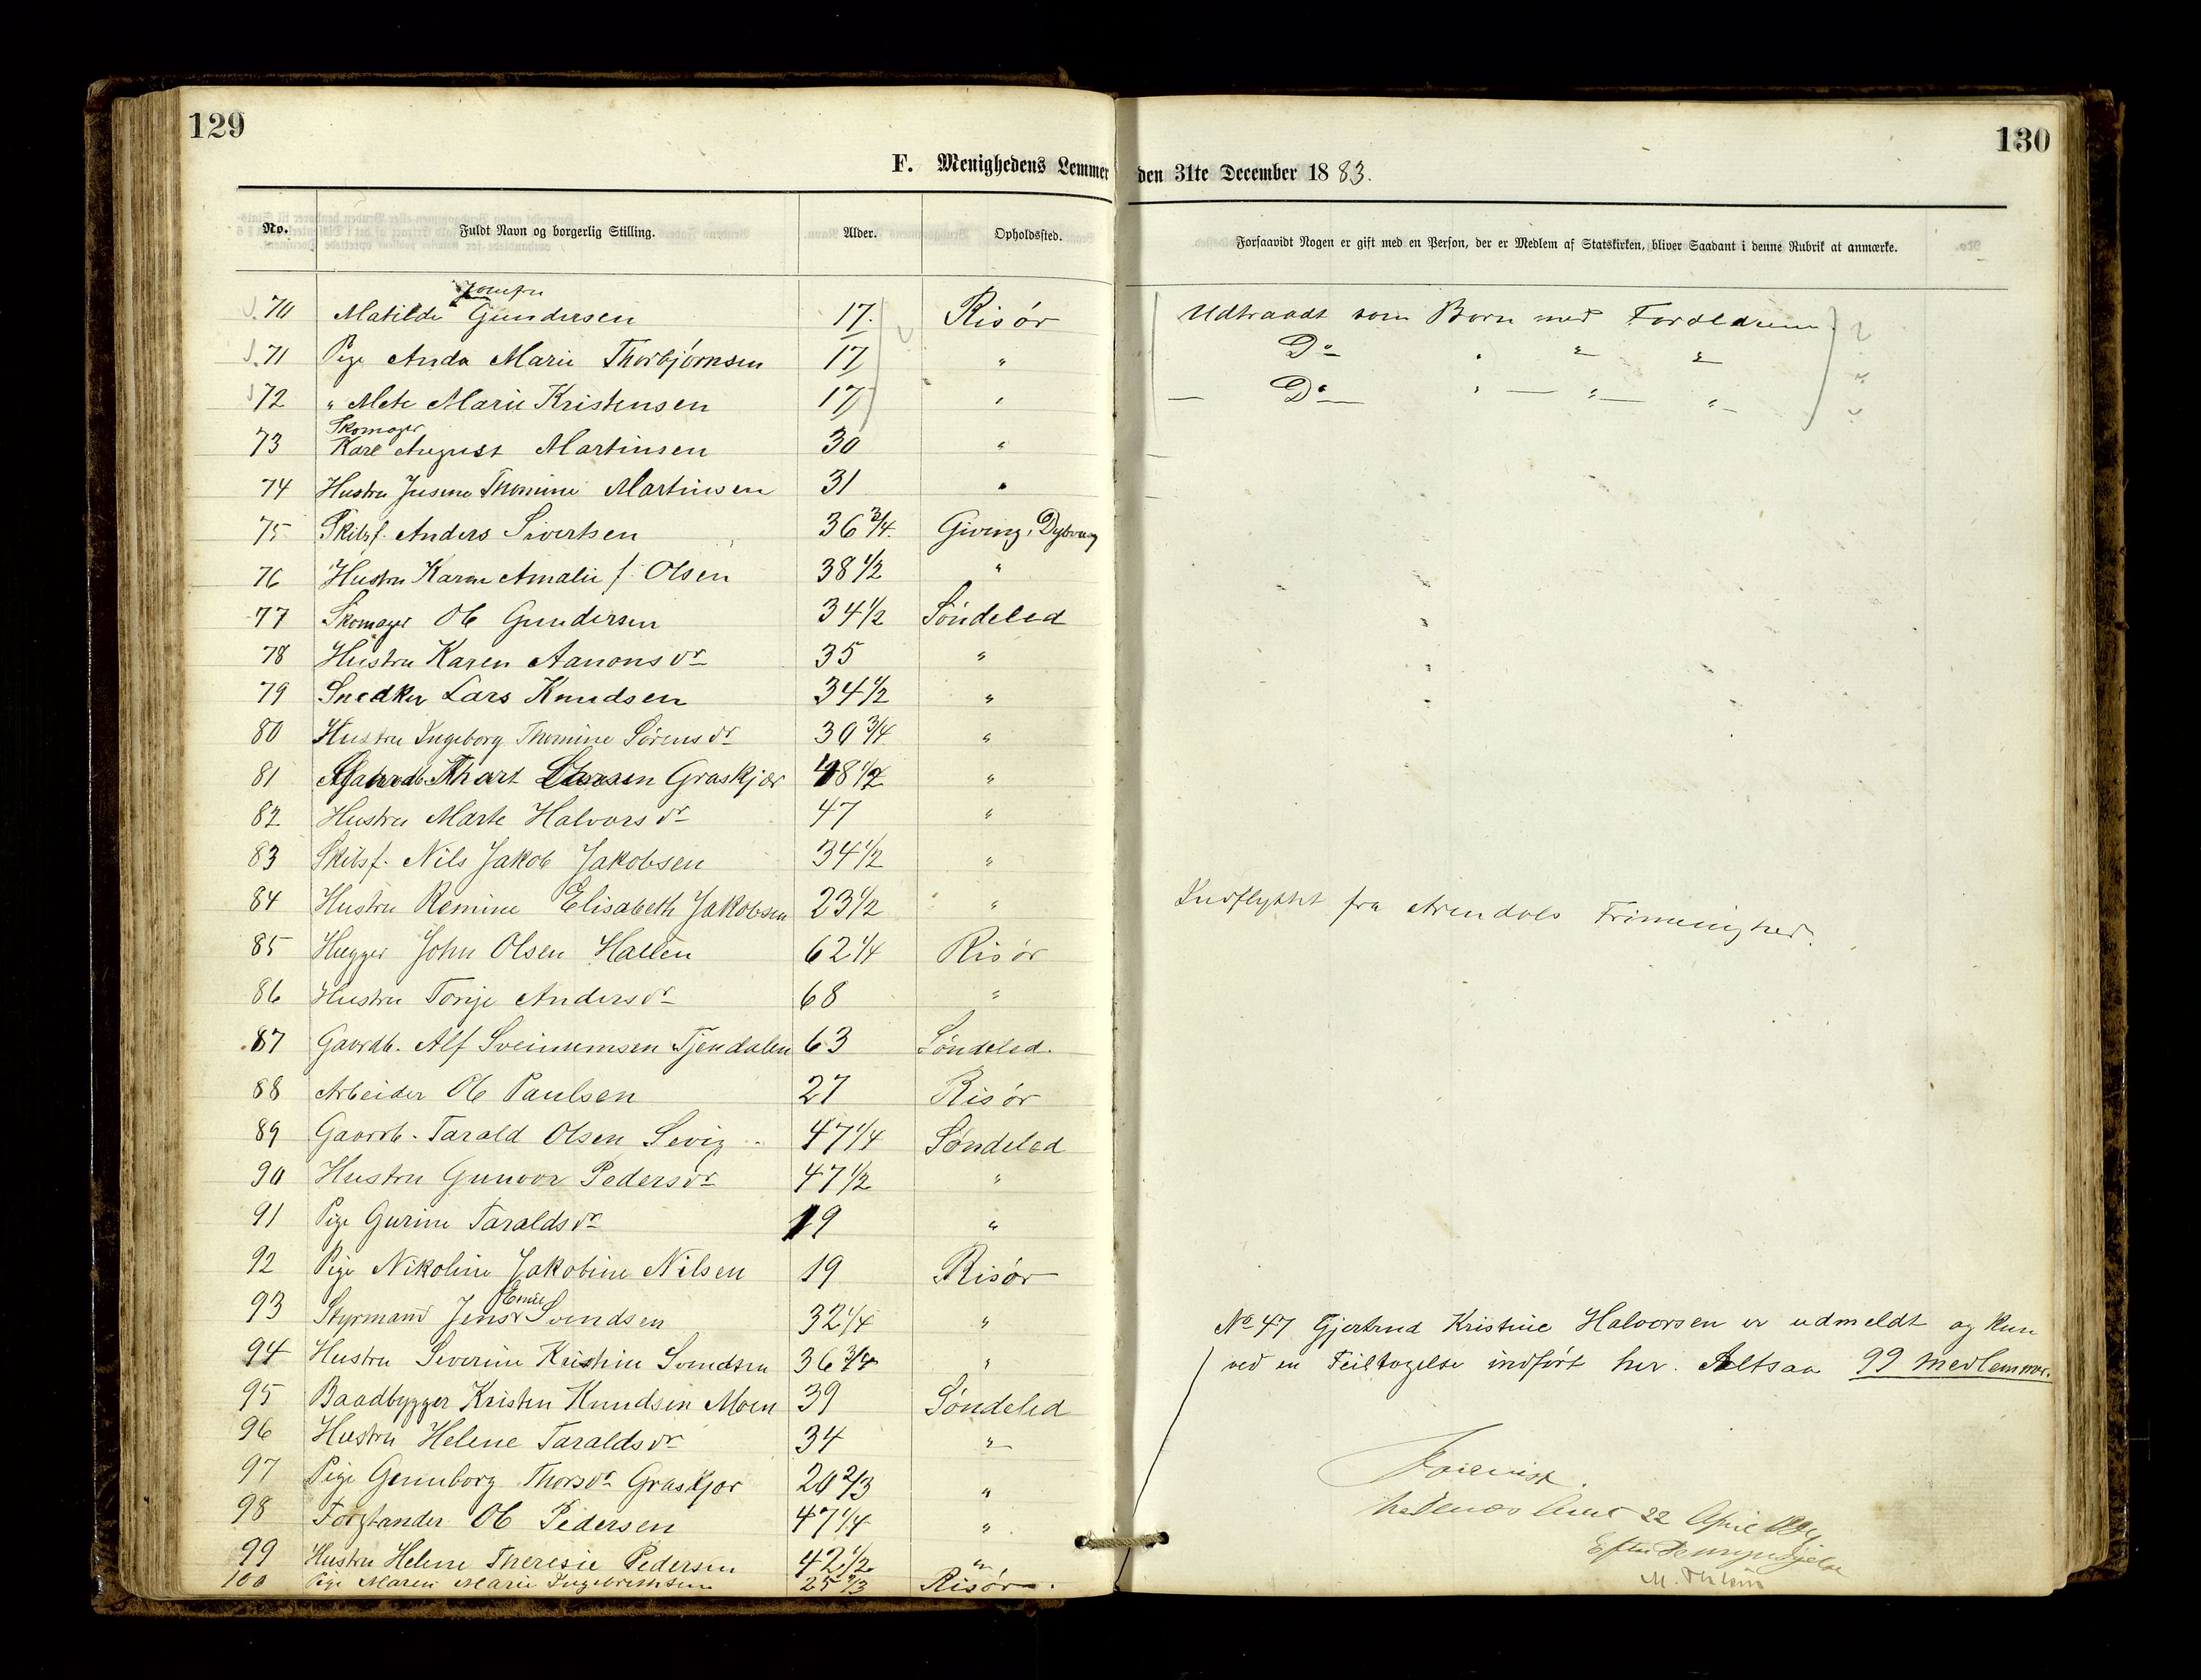 129
130
F. Menighedens Lemmer den 31te December 1883.
No. Fuldt Navn og borgerlig Stilling. Alder. Opholdssted. Forsaavidt Nogen er gift med en Person, der er Medlem af Statskirken, bliver Saadant i denne Rubrik at anmærke.
Jomfru
70 Matilde Gundersen 17. Risör Udtraadt som Born med Foreldrene.
71 Pige Anda Marie Thorbjørnsen 17 " Do " " "
72 " Mete Marie Kristensen 17 " Do " " "
Skomager
73 Karl August Martinsen 30 "
74 Hustru Jusine Thomine Martinsen 31 "
75 Skibsf. Anders Sivertsen 36 3/4. Giving, Dybvag
76 Hustru Karen Amalie f. Olsen 38 1/2 "
77 Skomager Ole Gundersen 34 1/2 Söndeled
78 Hustru Karen Aanonsdr 35 "
79 Snedker Lars Knudsen 34 1/2 "
80 Hustru Ingeborg Thomine Sörensdr 30 3/4 "
81 Graskjær 48 1/2 "
82 Hustru Marte Halvorsdr 47 "
83 Skibsf. Nils Jakob Jakobsen 34 1/2 "
84 Hustru Remine Elisabeth Jakobsen 23 1/2 " Indflyttet fra Arendals Frimenighed.
85 Hugger John Olsen Hallen 62 1/4 Risör
86 Hustru Torije Andersdr 68 "
87 Gaardb. Alf Sveinumsen Tjendalen 63 Söndeled.
88 Arbeider Ole Paulsen 27 Risör
89 Gaardb. Tarald Olsen Sevig 47 1/4 Söndeled
90 Hustru Gunvor Pedersdr 47 1/2 "
91 Pige Gurine Taraldsdr 19 "
92 Pige Nikoline Jakobine Nilsen 19 Risör
Emil
93 Styrmand Jens Svendsen 32 1/4 "
94 Hustru Severine Kristine Svendsen 36 3/4 "
95 Baadbygger Kristen Knudsen Moen 39 Söndeled
96 Hustru Helene Taraldsdr 34 "
97 Pige Gunnborg Thorsdr Graskjær 20 2/3 "
98 Forstander Ole Pedersen 47 1/4 "
99 Hustru Helene Theresie Pedersen 42 1/2 "
100 Pige Maren Marie Ingebrethsen 25 2/3 Risör.
No 47 Gjertrud Kristine Halvorsen er udmeldt og kun
ved en Feiltagelse indført her. Altsaa 99 medlemmer.
Forevist.
Nedenes Amt 22 April 1884
Efter Bemyndigelse